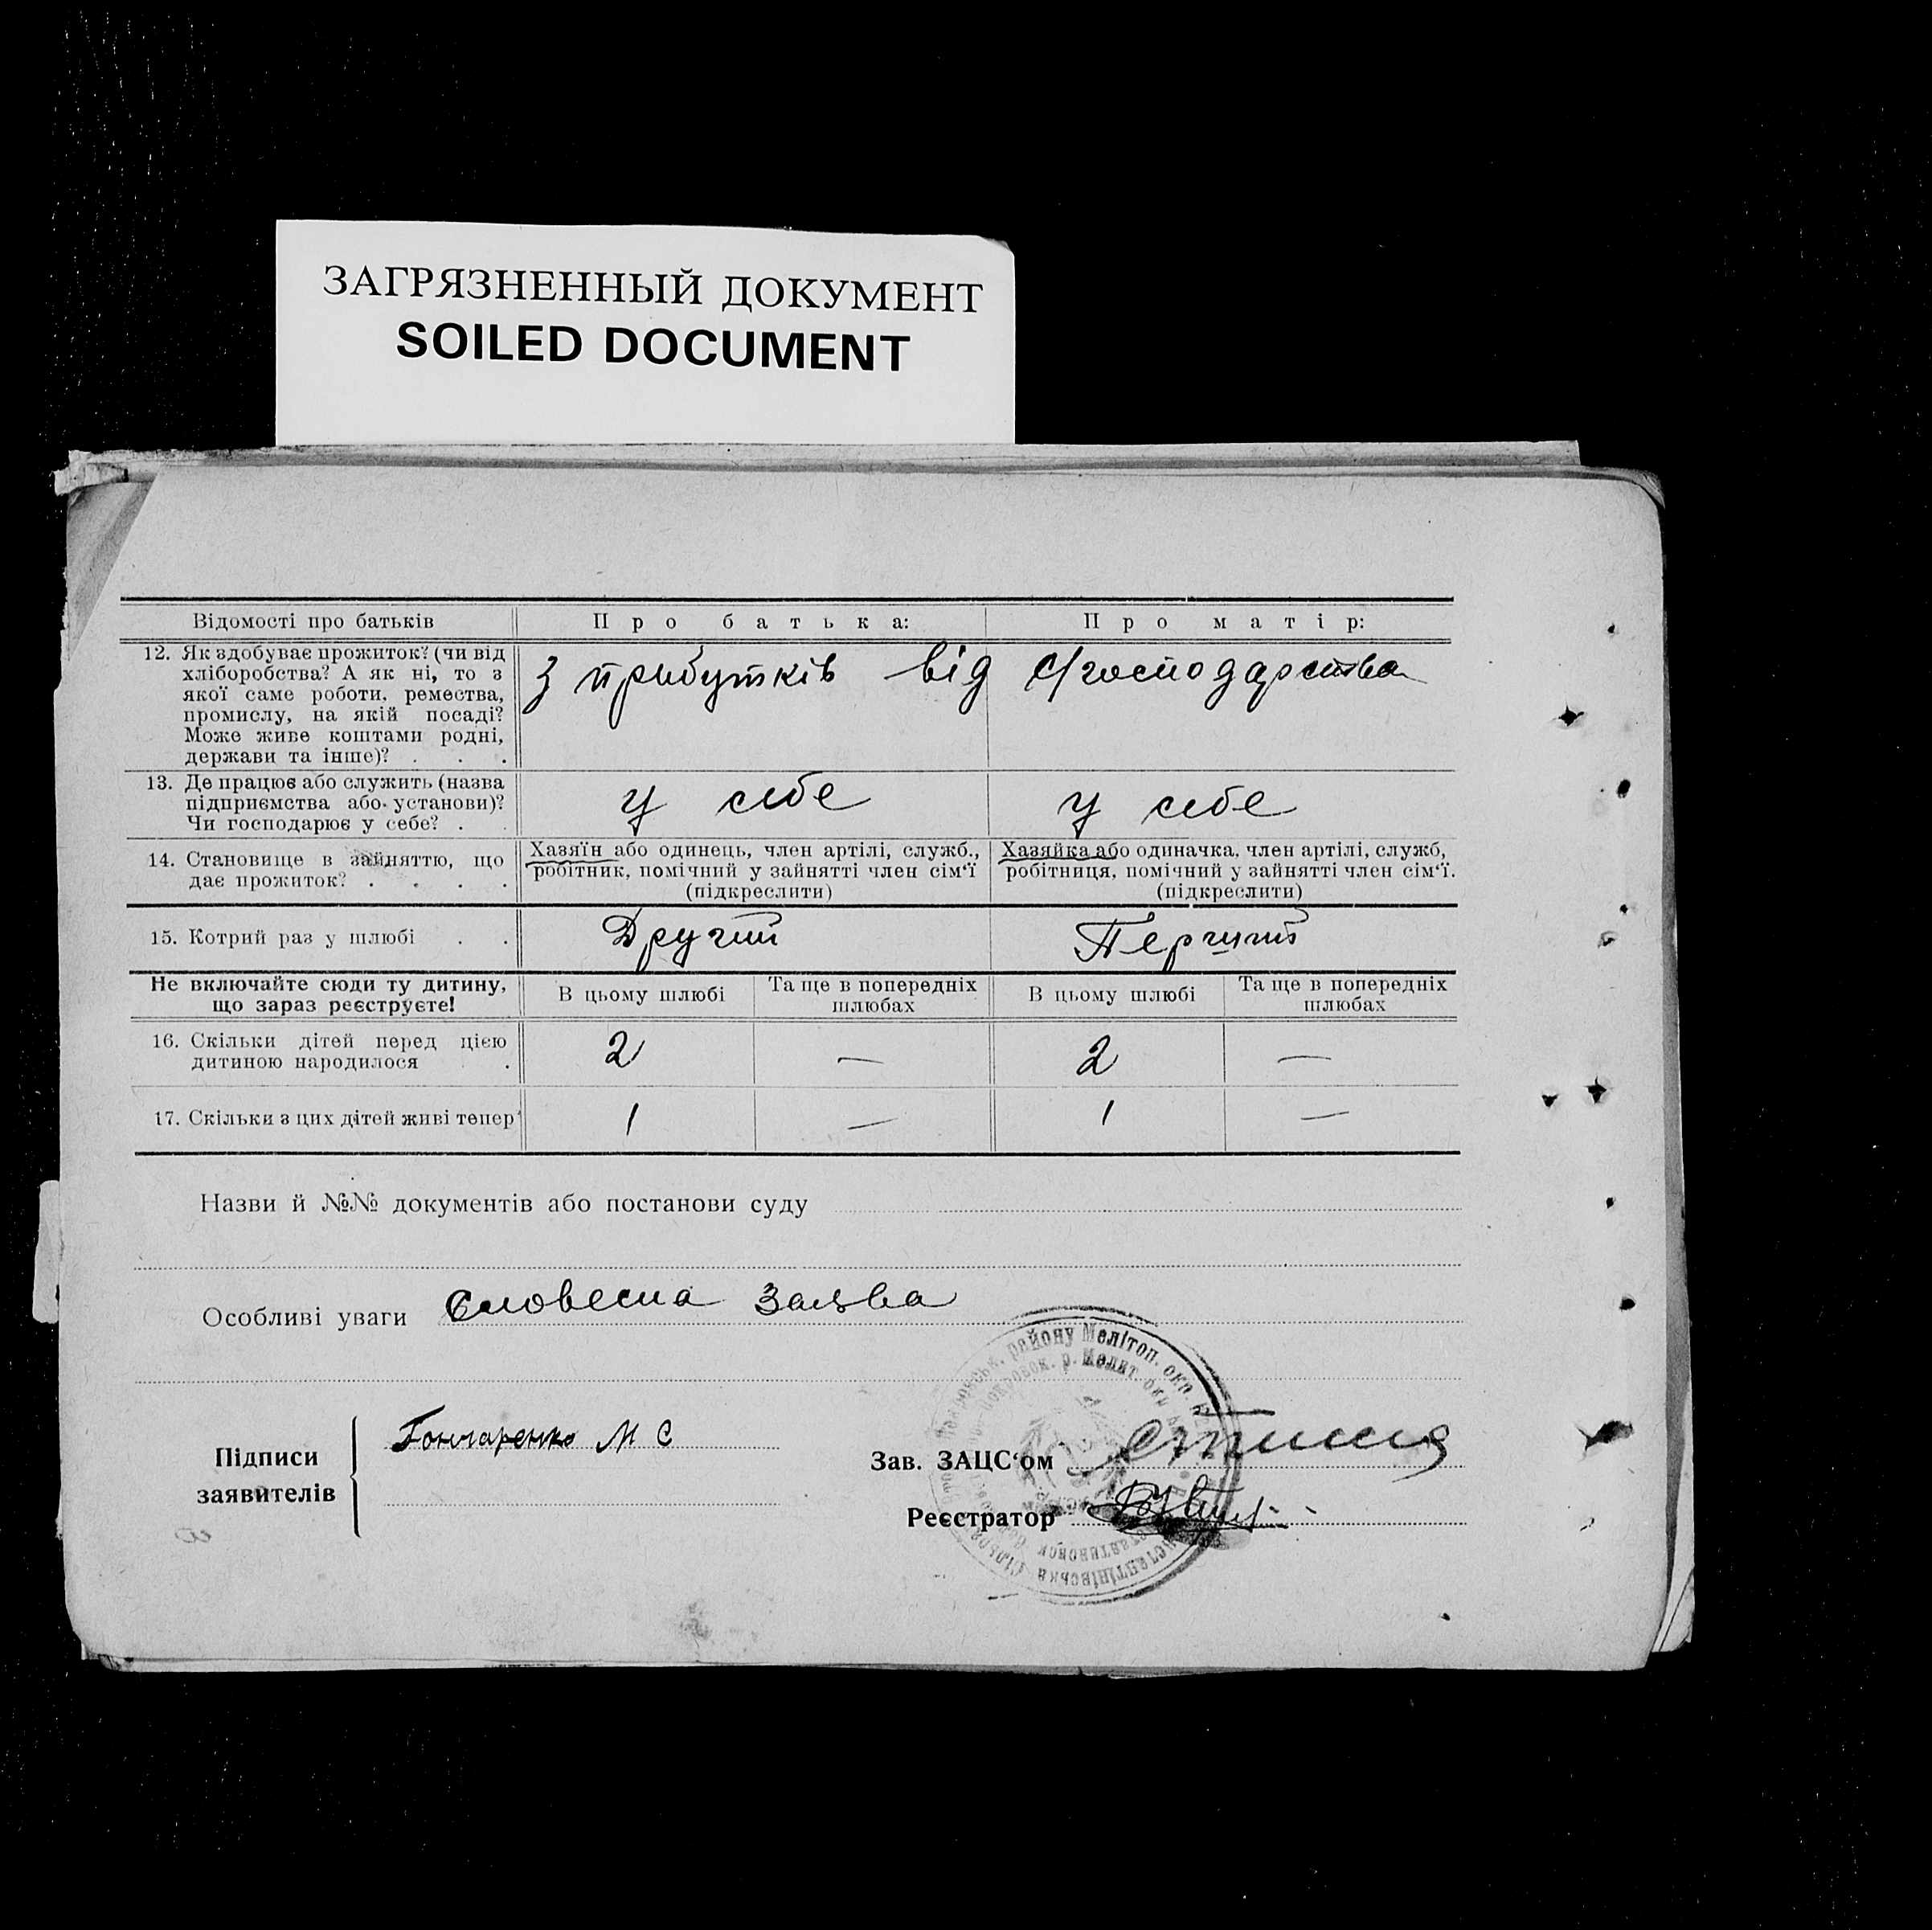 ЗАГРЯЗНЕННЫЙ ДОКУМЕНТ
SOILED DOCUMENT
Відомості про батьків
Про батька:
Про матір:
12. Як здобуває прожиток? (чи від
хліборобства? А як ні, то з
якої саме роботи, ремества,
промислу, на якій посаді?
Може живе коштами родні,
держави та інше)? . . .
з прибутків від с/господарства
13. Де працює або служить (назва
підприємства або установи)?
Чи господарює у себе? . .
у себе
у себе
14. Становище в зайняттю, що
дає прожиток? . . . .
Хазяїн або одинець, член артілі, служб.,
робітник, помічний у зайнятті член сім‘ї
(підкреслити)
Хазяйка або одиначка, член артілі, служб,
робітниця, помічний у зайнятті член сім‘ї.
(підкреслити)
15. Котрий раз у шлюбі . .
Другий
Перший
Не включайте сюди ту дитину,
що зараз реєструєте!
В цьому шлюбі
Та ще в попередніх
шлюбах
В цьому шлюбі
Та ще в попередніх
шлюбах
16. Скільки дітей перед цією
дитиною народилося .
2
—
2
—
17. Скільки з цих дітей живі тепер
1
—
1
—
Назви й №№ документів або постанови суду
Особливі уваги Словесна Заява
району Мелітоп. окр.
р. Мелит. окр
Підписи
заявителів
Гончаренко М С
Зав. ЗАЦС‘ом
Реєстратор